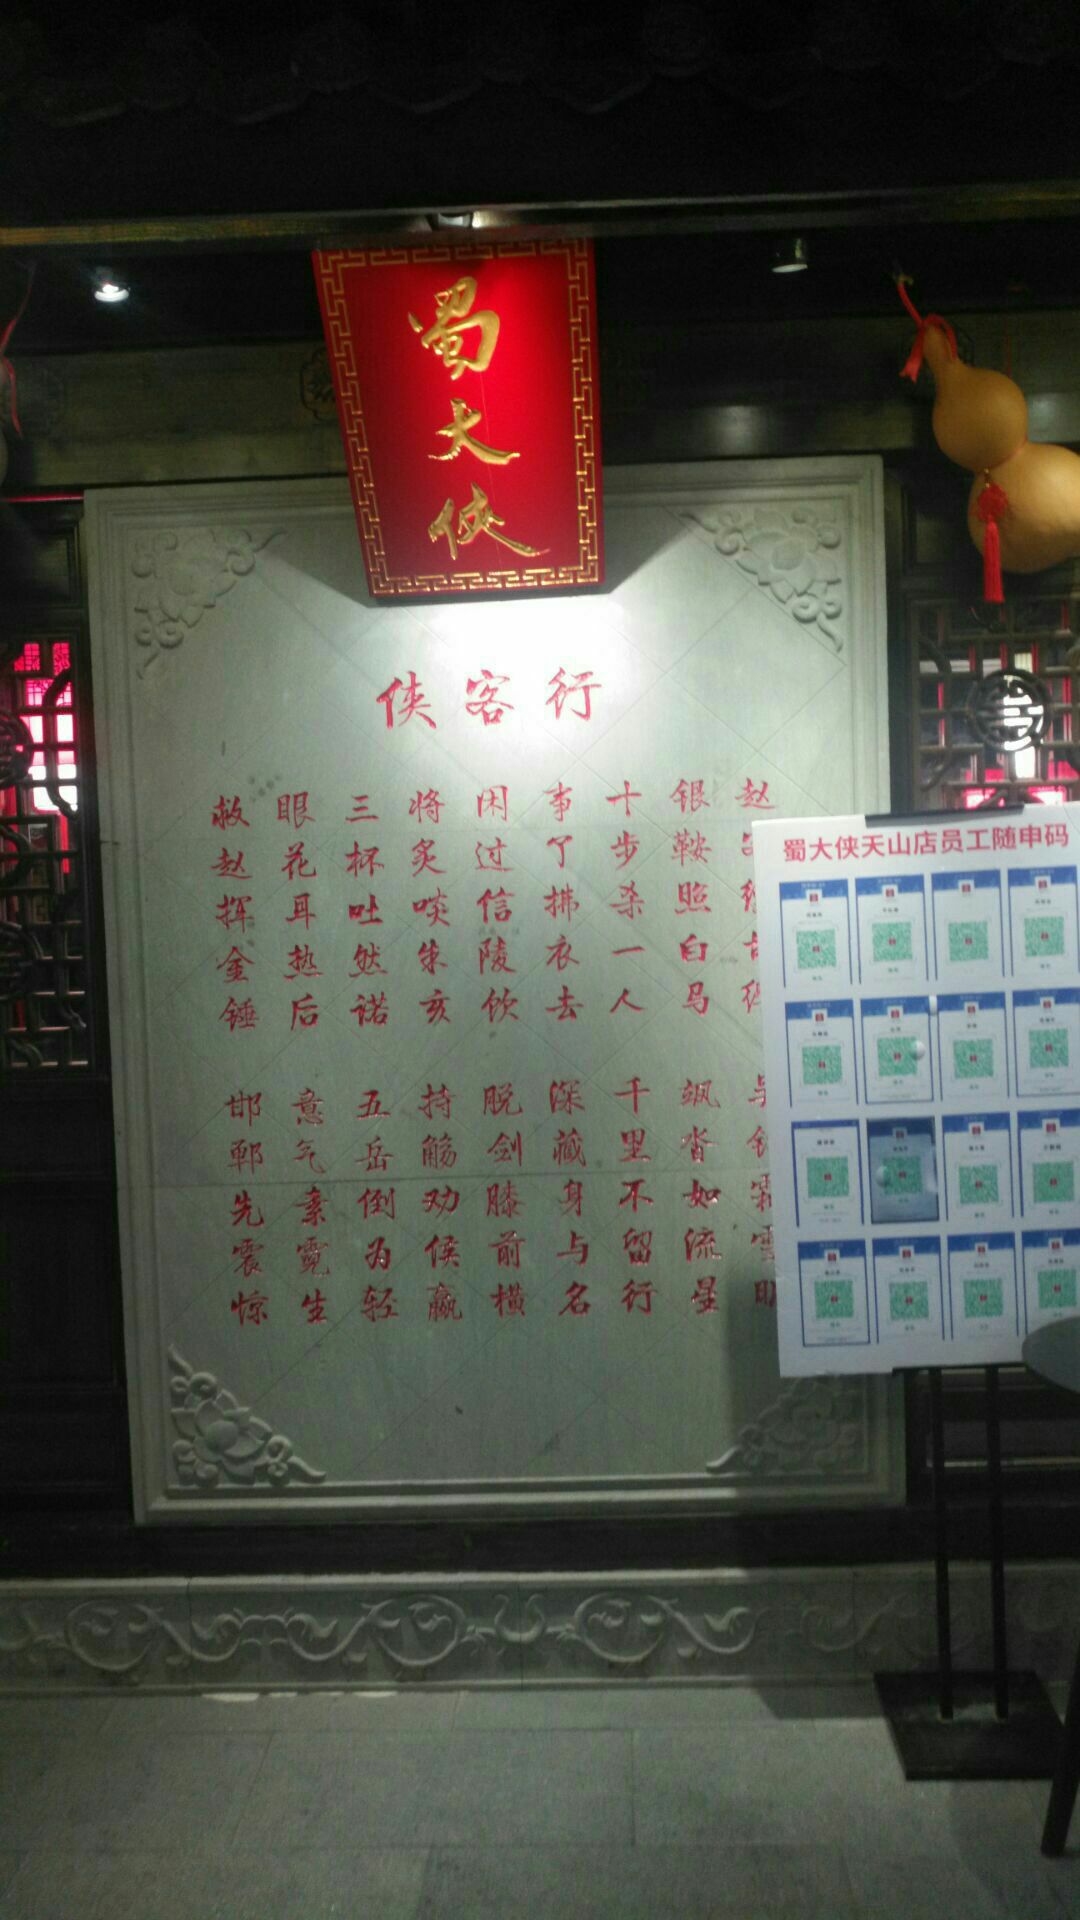 蜀大侠
侠客行
赵
银鞍照白马 飒沓如流星
十步杀一人 千里不留行
事了拂衣去 深藏身与名
闲过信陵饮 脱剑膝前横
将炙啖朱亥 持觞劝侯嬴
三杯吐然诺 五岳倒为轻
眼花耳热后 意气素霓生
救赵挥金锤 邯郸先震惊
蜀大侠天山店员工随申码